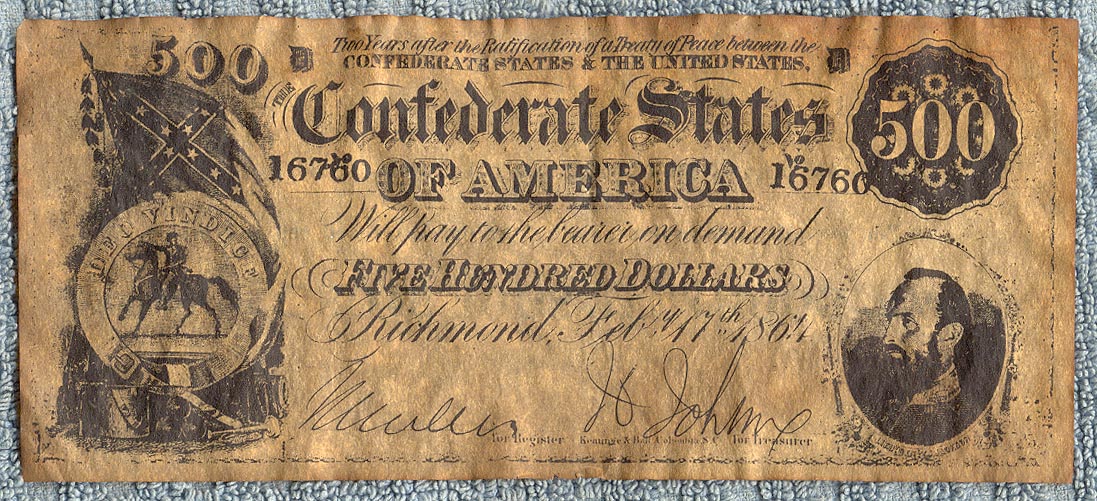 500
D Two Years after the Ratification of a Treaty of Peace between the D
CONFEDERATE STATES & THE UNITED STATES.
THE Confederate States
500
16760 OF AMERICA 16760
Will pay to the bearer on demand
FIVE HUNDRED DOLLARS
Richmond, Feby. 17th 1864
DEO VINDICE
for Register Keatinge & Ball Columbia S.C. for Treasurer